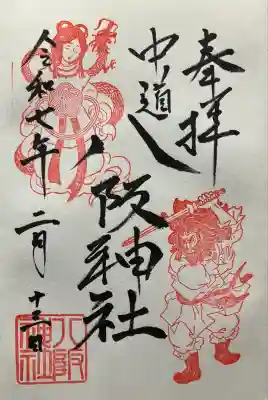 奉拝
中ノ道
八阪神社
令和七年
二月
十二日
八阪神社